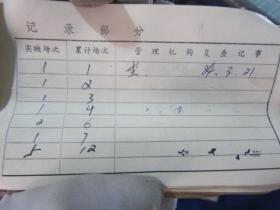 记 录 部 分
实映场次 累计场次 管 理 机 构 复 查 记 事
1 1 84.3.21
1 2
1 3
1 4
2 6
1 7
5 12